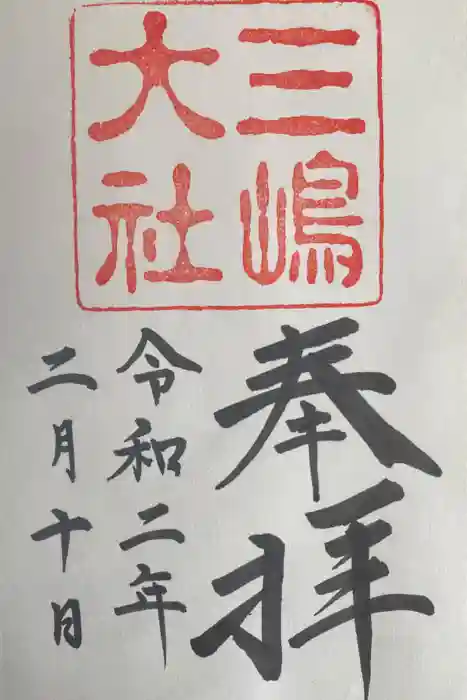 三嶋
大社
奉拝
令和二年
二月十日